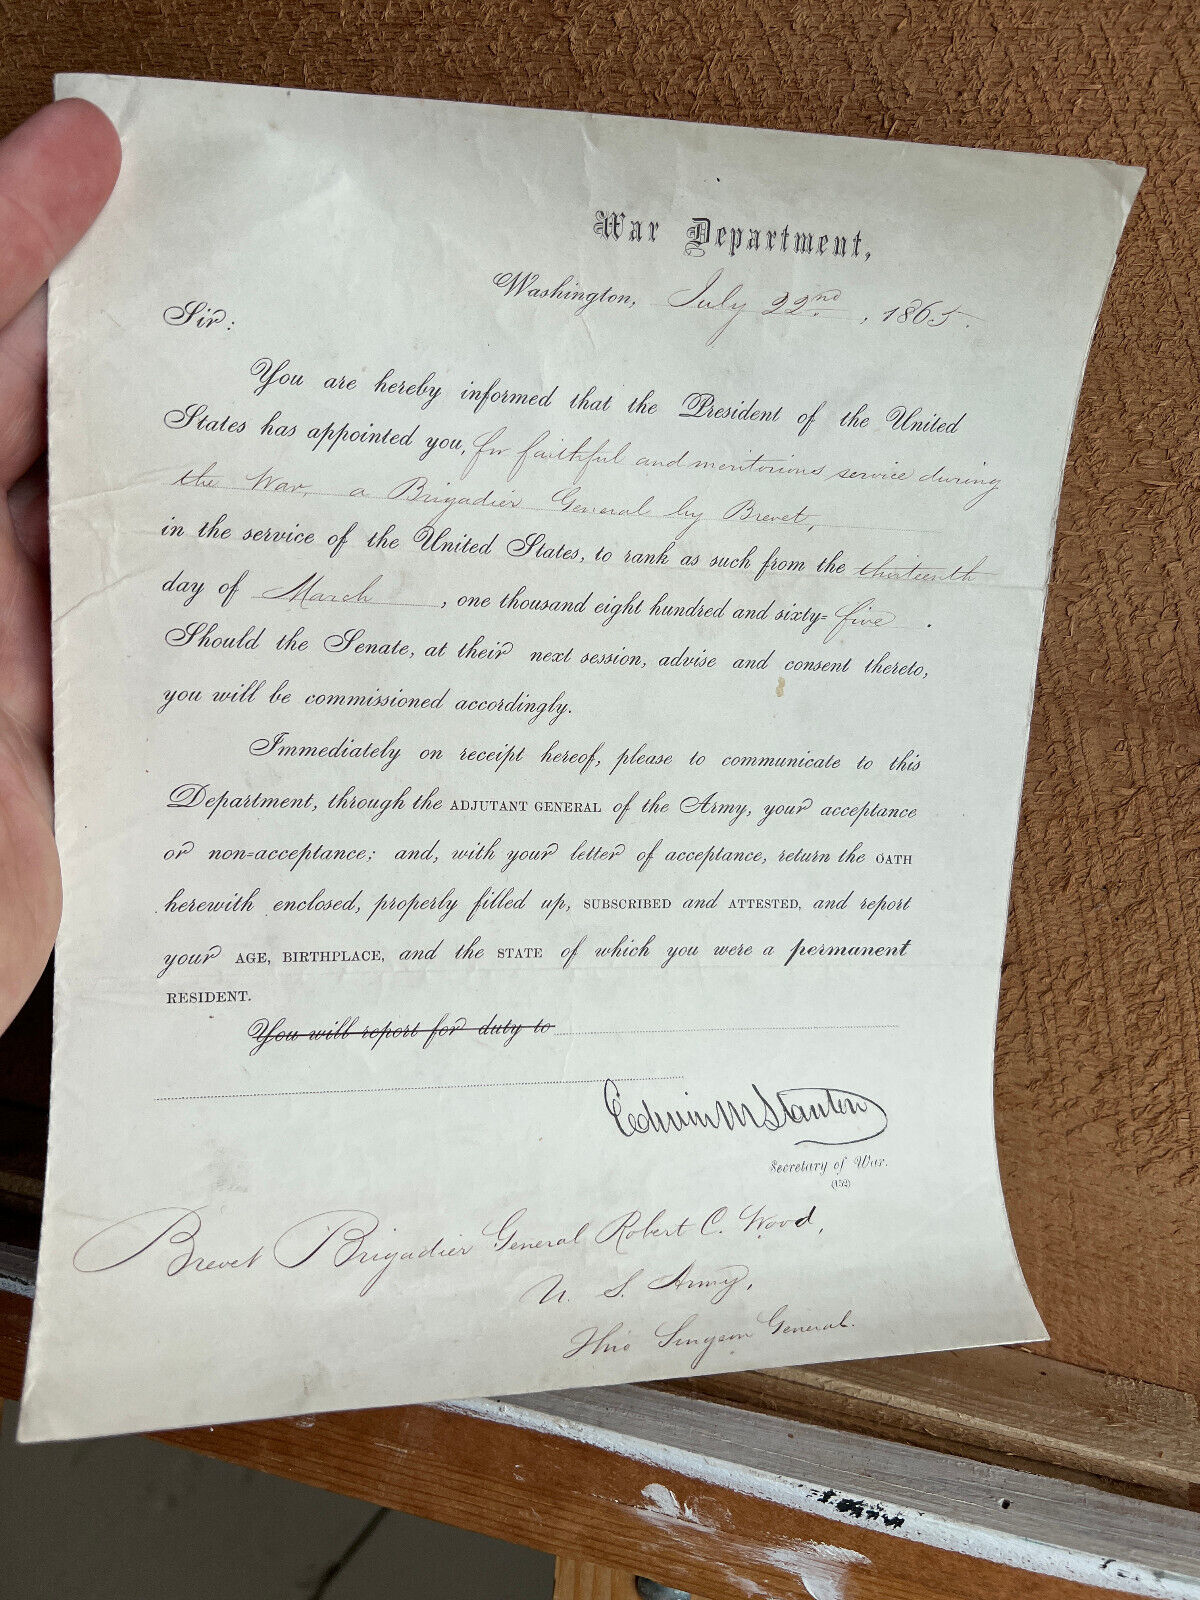 War Department,
Washington, July 22nd, 1865.
Sir:
You are hereby informed that the President of the United
States has appointed you, for faithful and meritorious service during
the War, a Brigadier General by Brevet,
in the service of the United States, to rank as such from the thirteenth
day of March, one thousand eight hundred and sixty=five.
Should the Senate, at their next session, advise and consent thereto,
you will be commissioned accordingly.
Immediately on receipt hereof, please to communicate to this
Department, through the ADJUTANT GENERAL of the Army, your acceptance
or non=acceptance; and, with your letter of acceptance, return the OATH
herewith enclosed, properly filled up, SUBSCRIBED and ATTESTED, and report
your AGE, BIRTHPLACE, and the STATE of which you were a permanent
RESIDENT.
You will report for duty to
Edwin M Stanton
Secretary of War.
(152)
Brevet Brigadier General Robert C. Wood,
U. S. Army,
Thro Surgeon General.